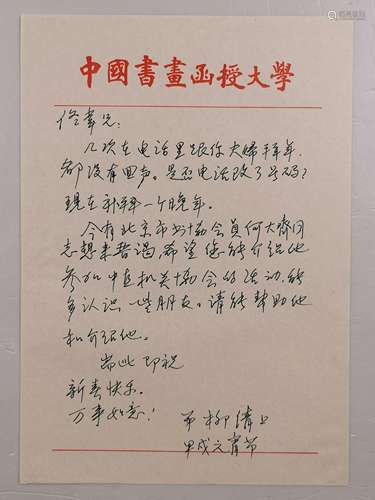 中國書畫函授大學
俊韋兄:
几次在电话里跟你夫婦拜年,
都没有回声。是否电话改了号码?
现在补拜一个晚年。
今有北京市书协会员何大齊同
志想来晋謁,希望您能介绍他
参加中直机关书协会的活动,能
多认识一些朋友。请能幫助他
和介绍他。
耑此 即祝
新春快乐。
万事如意!
弟 柳倩上
甲戌元宵节